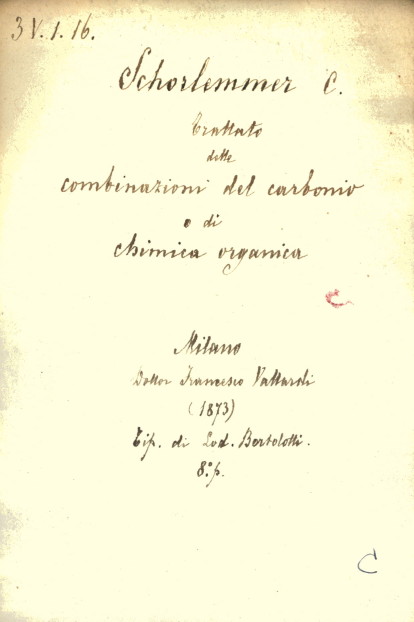 3 V. 1. 16.
Schorlemmer C.
Trattato
delle
combinazioni del carbonio
o di
chimica organica
C
Milano
Dottor Francesco Vallardi
(1873)
Tip. di Lod. Bortolotti.
8.° p.
C